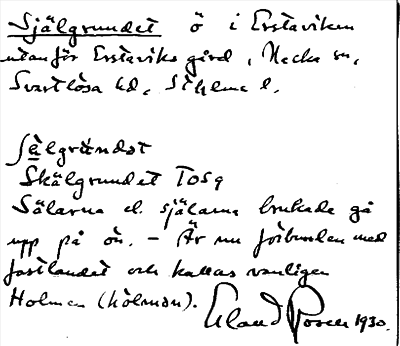 Själgrundet ö i Erstaviken
utanför Erstaviks gård, Nacka sn,
Svartlösa hd, Sthlms l.
Skälgrundet TO59
Sälarna el. själarna brukade gå
upp på ön. – Är nu förbunden med
fastlandet och kallas vanligen
Holmen (hòlmən).
Erland Rosell 1930.